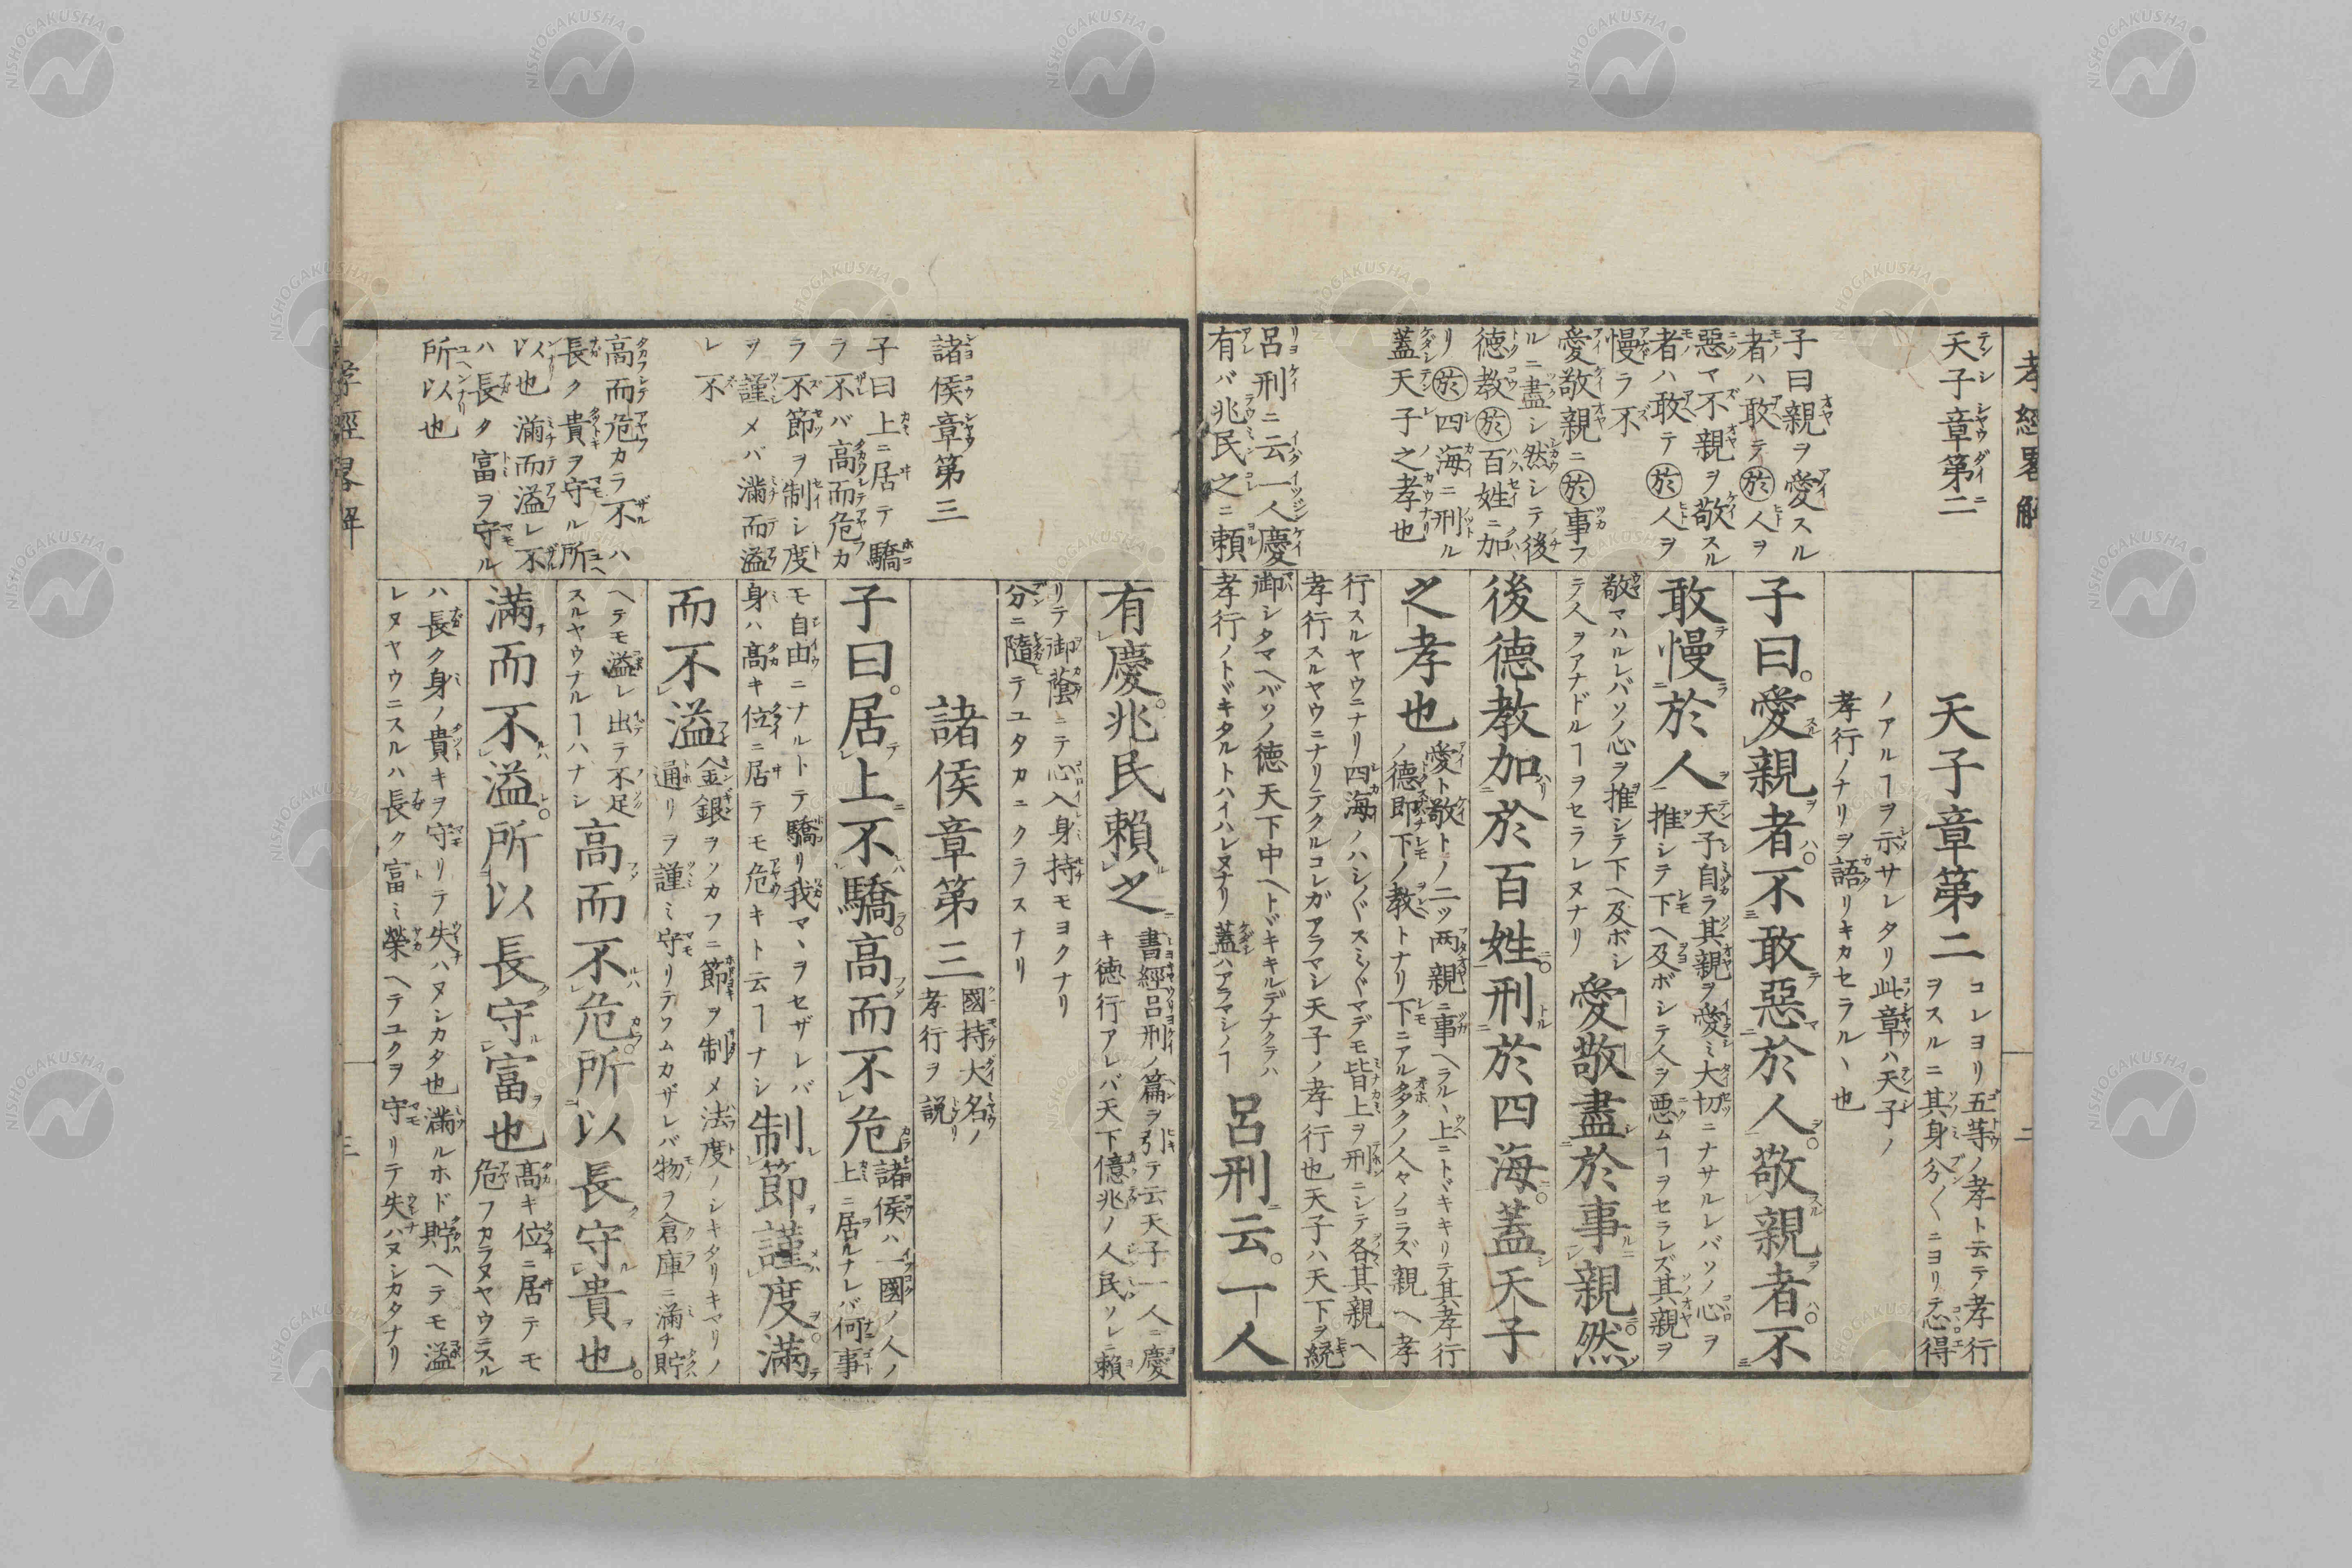 孝經畧解
天子章第二
子曰親ヲ愛スル
者ハ敢テ於人ヲ
惡マ不親ヲ敬スル
者ハ敢テ於人ヲ
慢ラ不
愛敬親ニ於事フ
ルニ盡シ然シテ後
德教於百姓ニ加
リ於四海ニ刑ル
蓋天子之孝也
呂刑ニ云一人慶
有バ兆民之ニ賴
天子章第二
コレヨリ五等ノ孝ト云テ孝行
ヲスルニ其身分〱ニヨリテ恴得
ノアルヿヲ示サレタリ此章ハ天子ノ
孝行ノナリヲ語リキカセラルヽ也
子曰。愛親者。不敢惡於人。敬親者。不
敢慢於人
天子自ラ其親ヲ愛ミ大切ニナサルレバソノ心ヲ
推シテ下ヘ及ボシテ人ヲ悪ムヿヲセラレズ其親ヲ
敬マハルレバソノ心ヲ推シテ下ヘ及ボシ
テ人ヲアナドルヿヲセラレヌナリ
愛敬盡於事親。然
後德教加於百姓。刑於四海。蓋天子
之孝也
愛ト敬トノ二ツ两親ニ事ヘラルヽ上ニトドキキリテ其孝行
ノ德即下ノ教トナリ下ニアル多クノ人々ノコラズ親ヘ孝
行スルヤウニナリ四海ノハシ〲スミ〲マデモ皆上ヲ刑ニシテ各其親ヘ
孝行スルヤウニナリテクルコレガアラマシ天子ノ孝行也天子ハ天下ヲ統
御シタマヘバソノ德天下中ヘトドキキルデナクテハ
孝行ノトドキタルトハイハレヌナリ蓋ハアラマシノヿ
呂刑云。一人
有慶。兆民賴之
書經呂刑ノ篇ヲ引テ云天子一人ニ慶
キ德行アレバ天下億兆ノ人民ソレニ賴
リテ御蔭ニテ心入身持モヨクナリ
分ニ隨テユタカニクラスナリ
諸侯章第三
子曰上ニ居テ驕
ラ不バ高而危カ
ラ不節ヲ制シ度
ヲ謹メバ滿而溢
レ不
高而危カラ不ハ
長ク貴ヲ守ル所
以也滿而溢レ不
ハ長ク富ヲ守ル
所以也
諸侯章第三
國持大名ノ
孝行ヲ説
子曰。居上不驕。高而不危
諸侯ハ一國ノ人ノ
上ニ居ルナレバ何事
モ自由ニナルトテ驕リ我マヽヲセザレバ
身ハ高キ位ニ居テモ危キト云ヿナシ
制節謹度。滿
而不溢
金銀ヲツカフニ節ヲ制メ法度ノシキタリキマリノ
通リヲ謹ミ守リテフムカザレバ物ヲ倉庫ニ滿チ貯
ヘテモ溢レ出テ不足
スルヤウナルヿハナシ
高而不危。所以長守貴也。
滿而不溢。所以長守富也
高キ位ニ居テモ
危フカラヌヤウニスル
ハ長ク身ノ貴キヲ守リテ失ハヌシカタ也滿ルホド貯ヘテモ溢
レヌヤウニスルハ長ク富ミ榮ヘテユクヲ守リテ失ハヌシカタナリ
孝經畧解
二
三
NISHOGAKUSHA